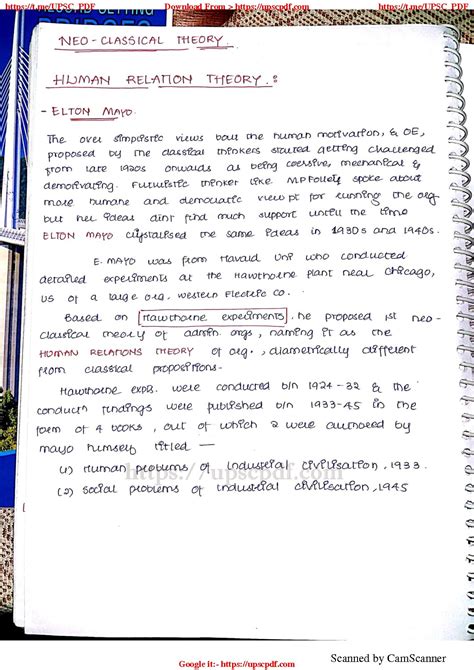 https://t.me/UPSC_PDF Download From > https://upscpdf.com https://t.me/UPSC_PDF
BRIDGES
NEO-CLASSICAL THEORY
HUMAN RELATION THEORY :
- ELTON MAYO.
The over simplistic views bout the human motivation, & OE,
proposed by the classical thinkers started getting challenged
from late 1920s onwards as being coersive, mechanical &
demotivating. Futuristic thinker like MPFollett spoke about
more humane and democratic view pt for running the org
but her ideas dint find much support until the time
ELTON MAYO crystalised the same ideas in 1930s and 1940s.
E. MAYO was from Havard Uni who conducted
detailed experiments at the Hawthorne plant near Chicago,
US of a large org. Western Electric Co.
Based on Hawthorne experiments, he proposed 1st neo-
classical theory of admin. orgs, naming it as the
HUMAN RELATIONS THEORY of org., diametrically different
from classical propositions-
Hawthorne exps. were conducted b/n 1924-32 & the
conduct findings were published b/n 1933-45 in the
form of 4 books, out of which 2 were authored by
mayo himself titled —
(1) Human problems of Industrial Civilisation, 1933.
https://upscpdf.com
(2) Social problems of industrial civilisation, 1945
Scanned by CamScanner
Google it:- https://upscpdf.com